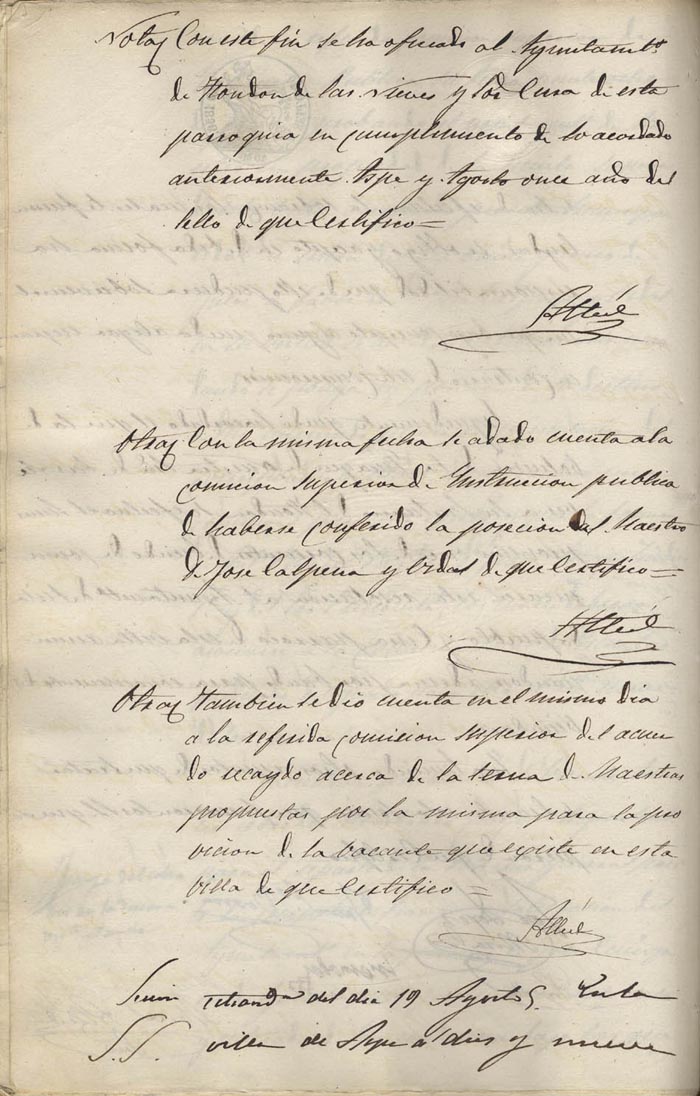 Nota Con este fin se ha oficiado al Ayuntamto
de Hondon de las nieves y Sor Cura de esta
parroquia en cumplimento de lo acordado
anteriormente Aspe y Agosto once año del
sello de que Certifico =
Otra Con la misma fecha se a dado cuenta a la
comicion superior de Instruccion publica
de haberse conferido la posecion del Maestro
D. Jose Calpena y Vidal de que Certifico =
Otra tambien se dio cuenta en el mismo dia
a la referida comicion superior del acuer
do recaydo acerca de la terna de Maestras
propuestas por la misma para la pro
vicion de la bacante que egiste en esta
villa de que Certifico =
del dia 19 Agosto En la
S.S. villa de Aspe a dies y nueve